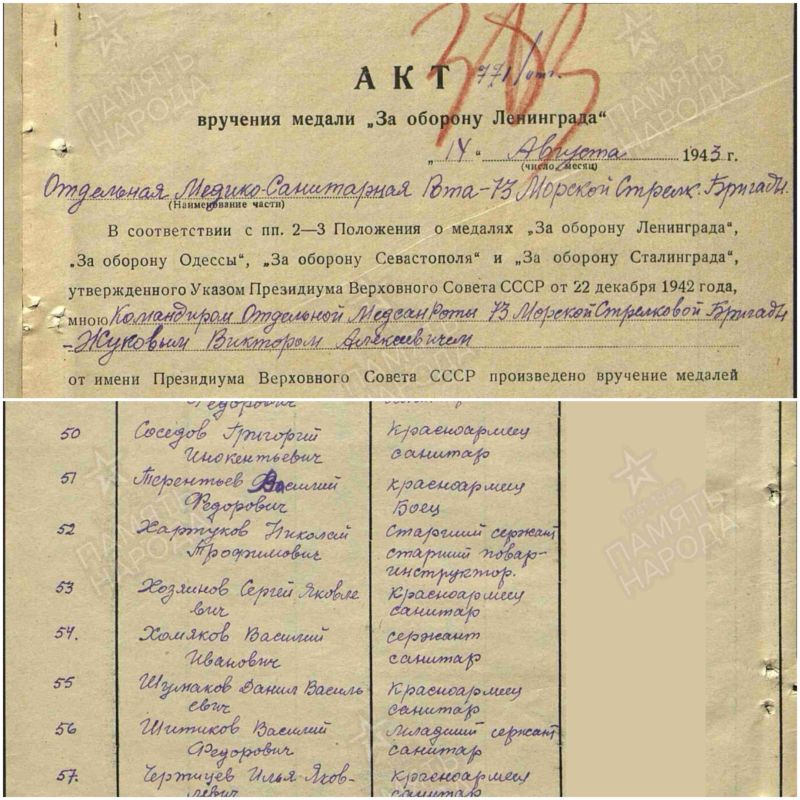 АКТ 771/
вручения медали „За оборону Ленинграда“
„ 14 “ Августа 1943 г.
(число, месяц)
Отдельная Медико-Санитарная Рта-73 Морской Стрелк. Бригады.
(Наименование части)
В соответствии с пп. 2—3 Положения о медалях „За оборону Ленинграда“,
„За оборону Одессы“, „За оборону Севастополя“ и „За оборону Сталинграда“,
утвержденного Указом Президиума Верховного Совета СССР от 22 декабря 1942 года,
мною Командиром Отдельной МедсанРоты 73 Морской Стрелковой Бригады
-Жуковым Виктором Алексеевичем
от имени Президиума Верховного Совета СССР произведено вручение медалей
Федорович
50 Соседов Григорий Красноармеец
Инокентьевич санитар
51 Терентьев Василий красноармеец
Федорович Боец
52 Хартуков Николай Старший сержант
Трофимович старший повар-
инструктор.
53 Хозяинов Сергей Яковле Красноармеец
вич санитар
54. Хомяков Василий сержант
Иванович санитар
55 Шумаков Данил Василь Красноармеец
евич санитар
56 Шитиков Василий Младший сержант
Федорович санитар
57. Чертицев Илья Яков- Красноармеец
левич санитар
ПАМЯТЬ НАРОДА